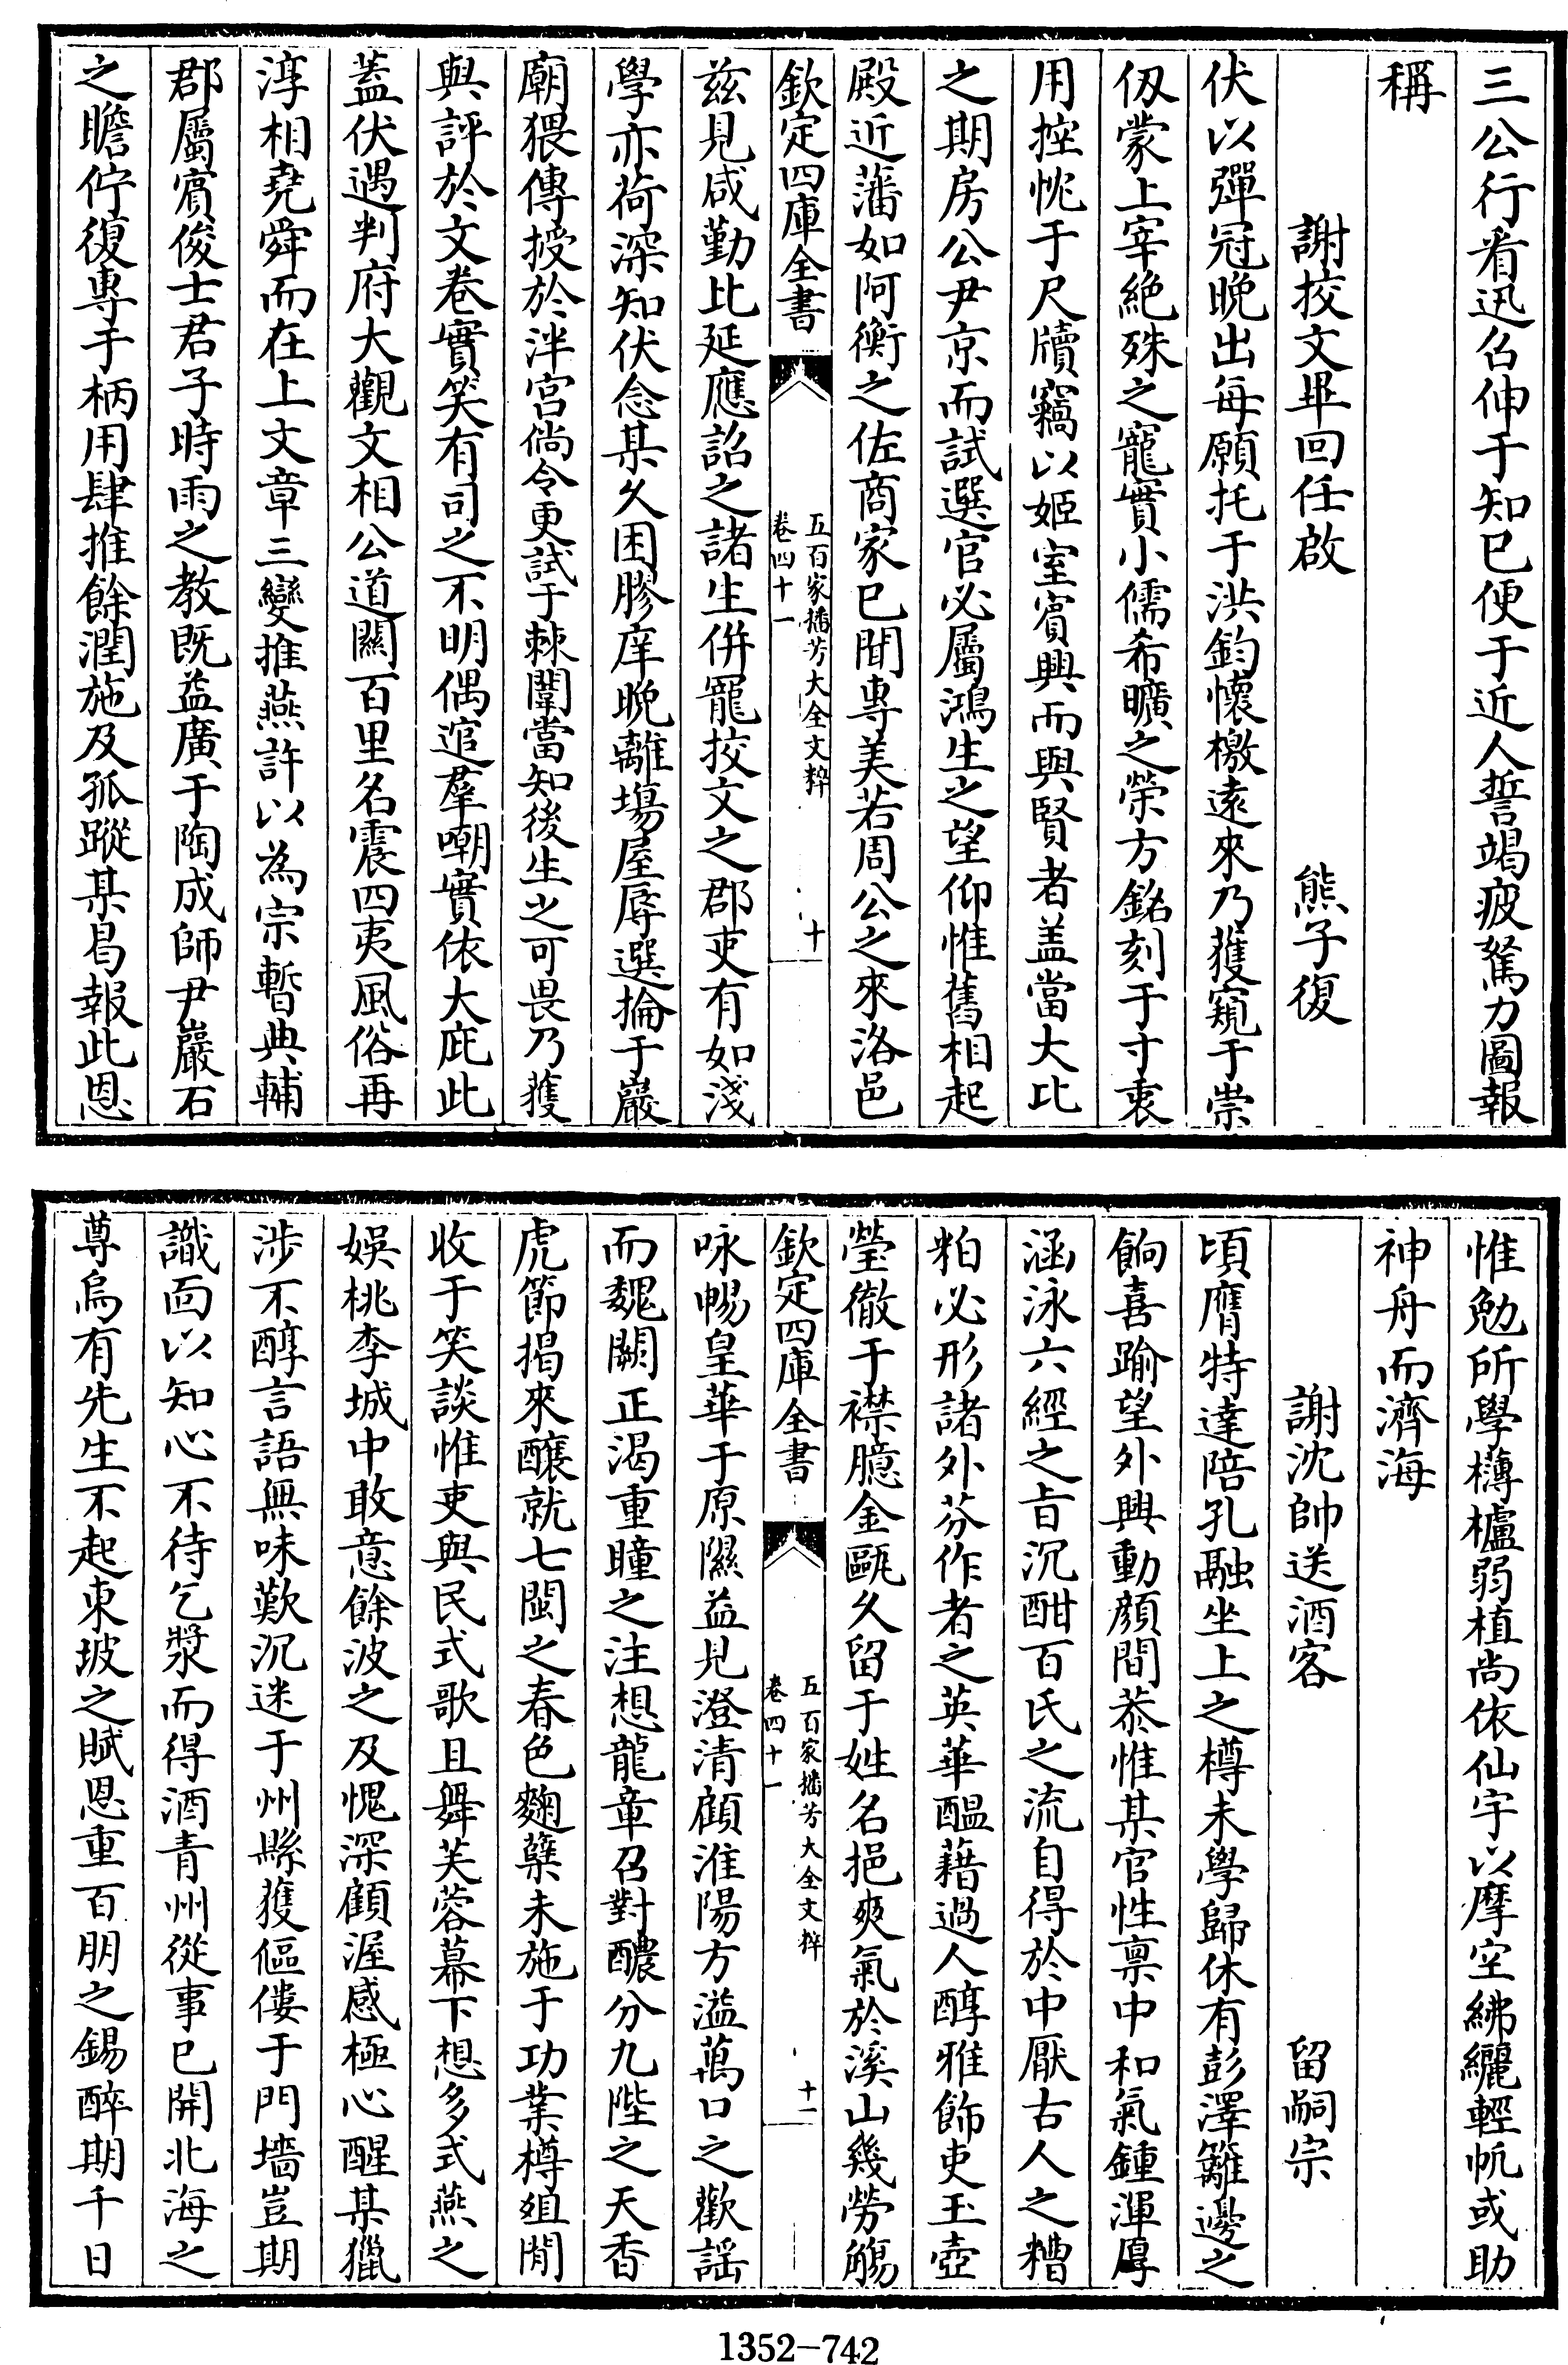 三公行看迅召伸于知已便于近人誓竭疲駑力圖報
稱
謝挍文畢回任啟　熊子復
伏以彈冠晚出每願托于洪鈞懷檄遠來乃獲窺于崇
仭蒙上宰絶殊之寵實小儒希曠之榮方銘刻于寸衷
用控忱于尺牘竊以姬室賓興而與賢者盖當大比
之期房公尹京而試選官必屬鴻生之望仰惟舊相起
殿近藩如阿衡之佐商家已聞專美若周公之來洛邑
欽定四庫全書　五百家播芳大全文粹　卷四十一　十
兹見咸勤比延應詔之諸生併罷挍文之郡吏有如淺
學亦荷深知伏念某久困膠庠晚離塲屋辱選掄于巖
廟猥傳授於泮宫倘令更試于棘闈當知後生之可畏乃獲
與評於文卷實笑有司之不明偶逭羣嘲實依大庇此
蓋伏遇判府大觀文相公道闗百里名震四夷風俗再
淳相堯舜而在上文章三變推燕許以為宗暫典輔
郡屬賓俊士君子時雨之教既益廣于陶成師尹巖石
之瞻佇復專于柄用肆推餘潤施及孤蹤某曷報此恩
惟勉所學欂櫨弱植尚依仙宇以摩空紼纚輕帆或助
神舟而濟海
謝沈帥送酒客　留嗣宗
頃膺特達陪孔融坐上之樽未學歸休有彭澤籬邊之
餉喜踰望外興動顔間恭惟某官性禀中和氣鍾渾厚
涵泳六經之旨沉酣百氏之流自得於中厭古人之糟
粕必形諸外芬作者之英華醖藉過人醇雅飾吏玉壺
瑩徹于襟臆金甌久留于姓名挹爽氣於溪山幾勞觴
欽定四庫全書　五百家播芳大全文粹　卷四十一　十一
咏暢皇華于原隰益見澄清顧淮陽方溢萬口之歡謡
而魏闕正渴重瞳之注想龍章召對醲分九陛之天香
虎節揭來釀就七閩之春色麴糵未施于功業樽俎閒
收于笑談惟吏與民式歌且舞芙蓉幕下想多式燕之
娛桃李城中敢意餘波之及愧深顧渥感極心醒某獵
涉不醇言語無味歎沉迷于州縣獲傴僂于門墻豈期
識面以知心不待乞漿而得酒青州從事已開北海之
尊烏有先生不起東坡之賦恩重百朋之錫醉期千日
1352-742